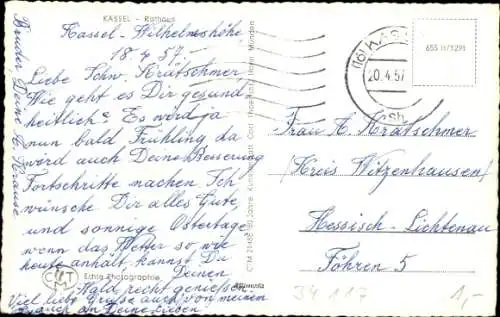 KASSEL - Rathaus
Kassel-Wilhelmshöhe
18.4.57.
Liebe Schw. Kratschmer
Wie geht es Dir gesund
heitlich? Es wird ja
nun bald Frühling da
wird auch Deine Besserung
Fortschritte machen. Ich
wünsche Dir alles Gute
und sonnige Ostertage
wenn das Wetter so wie
heute anhält kannst Du
Deinen
Wald recht genießen.
Viel liebe Grüße auch von meinem
auch an Deine Lieben
Bruder, Deine A. Krause
Echte Photographie
(16) KASSEL
20.4.57
655 11/1291
Frau A. Kratschmer
(Kreis Witzenhausen)
Hessisch-Lichtenau
Föhren 5
34 117
1,-